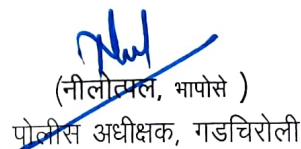 (नीलोत्पल, भापोसे )
पोलीस अधीक्षक, गडचिरोली